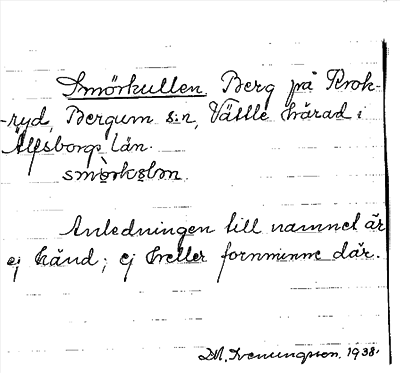 Smörkullen. Berg på Krok-
-ryd, Bergum s:n, Vättle härad i
Älfsborgs län.
smörkulən.
Anledningen till namnet är
ej känd; ej heller fornminne där.
M. Svenungsson. 1938.